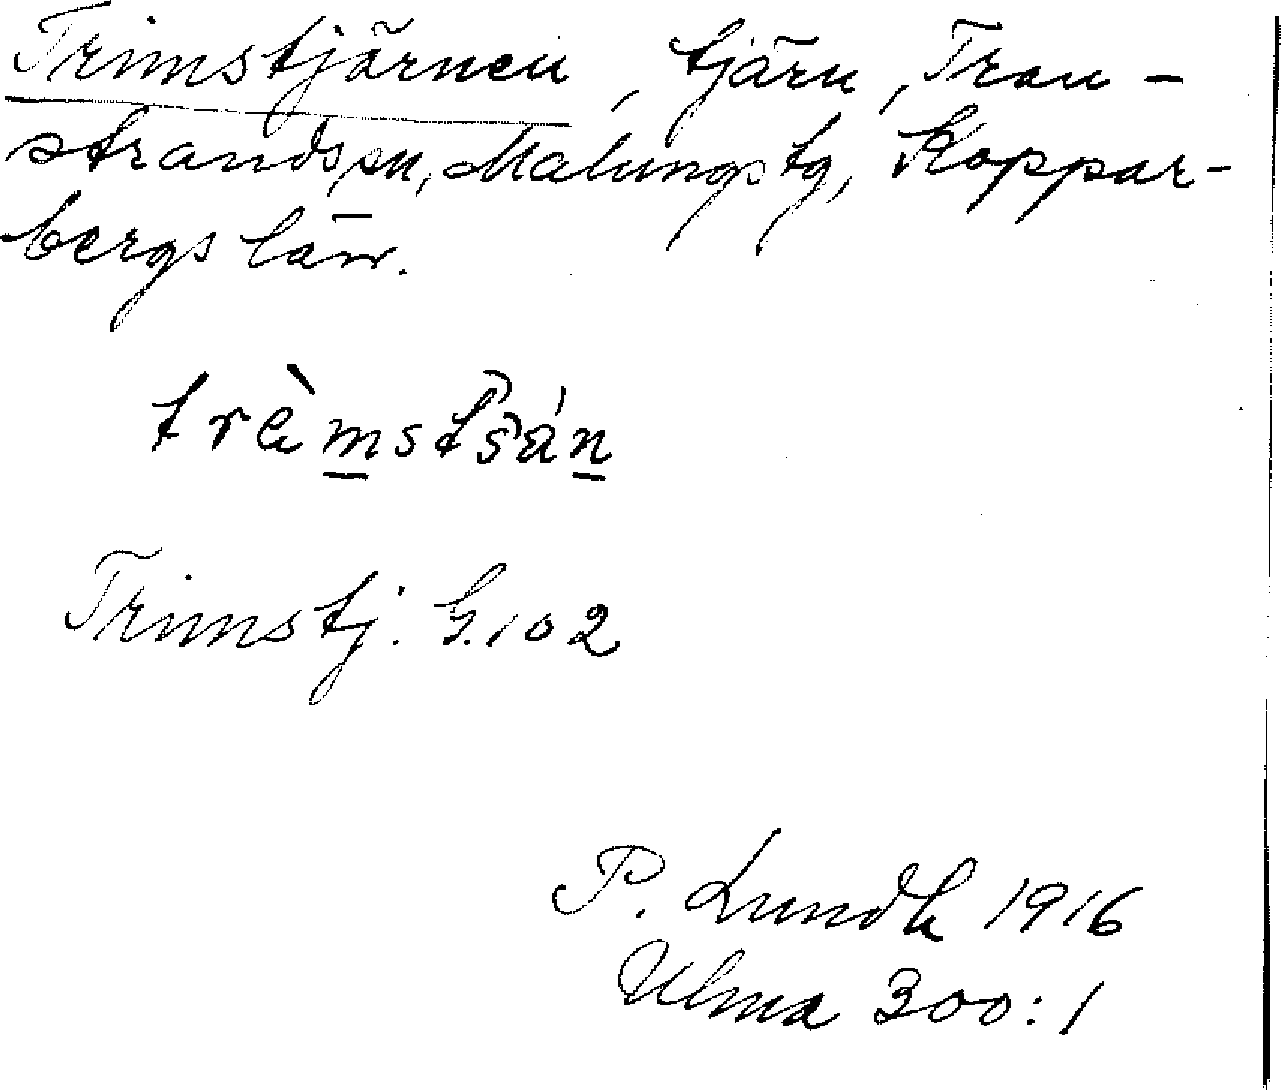 Trimstjärnen, tjärn, Tran-
strands sn, Malungs tg, Koppar-
bergs län.
Trimstj. G. 102
P. Lundk 1916
Ulma 300:1